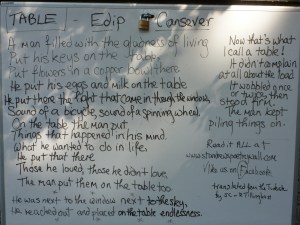 TABLE - Edip Cansever
A man filled with the gladness of living
Put his keys on the table
Put flowers in a copper bowl there.
He put his eggs and milk on the table
He put there the light that came in through the window,
Sound of a bicycle, sound of a spinning wheel.
On the table the man put.
Things that happened in his mind.
What he wanted to do in life,
He put that there
Those he loved, those he didn't love,
The man put them on the table too
He was next to the window next to the sky,
He reached out and placed on the table endlessness.
Now that's what
I call a table!
It didn't complain
at all about the load
It wobbled once
or twice, then
stood firm.
The man kept
piling things on.
Read it ALL at
like us on Facebook
translated from the Turkish
by